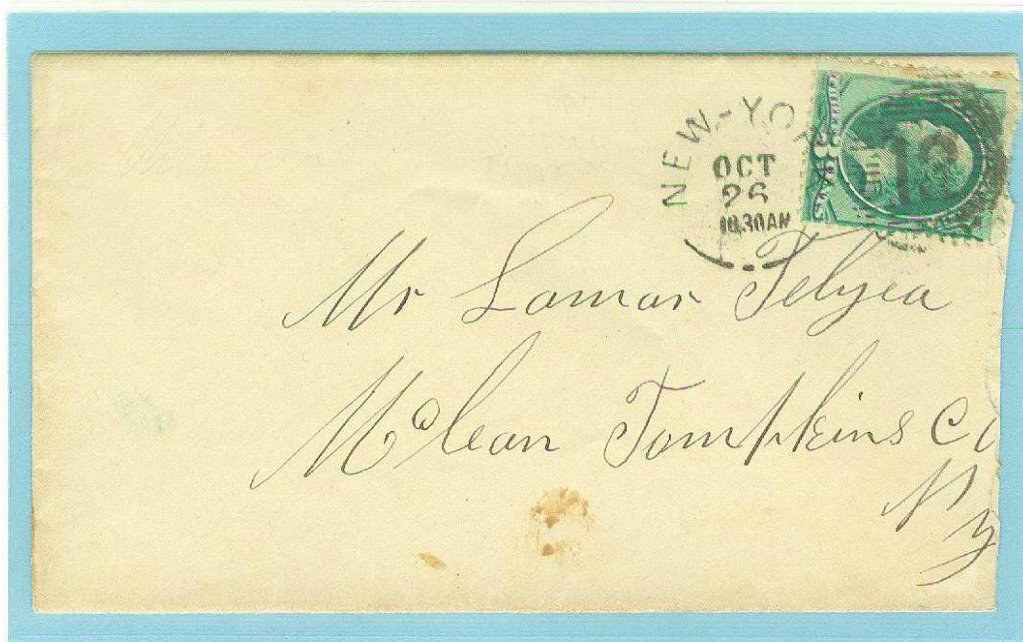 NEW-YORK
OCT
26
10.30AM
13
Mr Lamar Telyea
McLean Tompkins Co
Ny